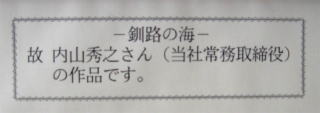 －釧路の海－
故 内山秀之さん（当社常務取締役）
の作品です。